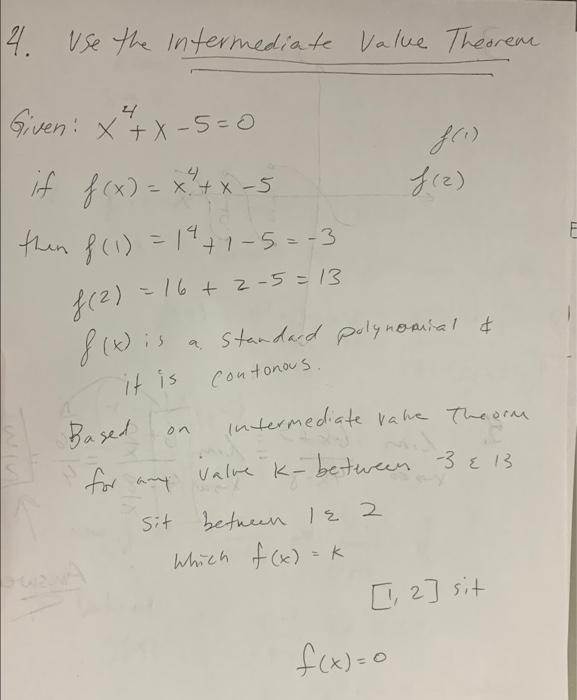 4. Use the Intermediate Value Theorem
Given: x⁴ + x - 5 = 0
f(1)
if f(x) = x⁴ + x - 5
f(2)
then f(1) = 1⁴ + 1 - 5 = -3
f(2) = 16 + 2 - 5 = 13
f(x) is a standard polynomial &
it is contonous.
Based on intermediate value Theorm
for any value k - between -3 & 13
sit between 1 & 2
which f(x) = k
[1, 2] sit
f(x) = 0